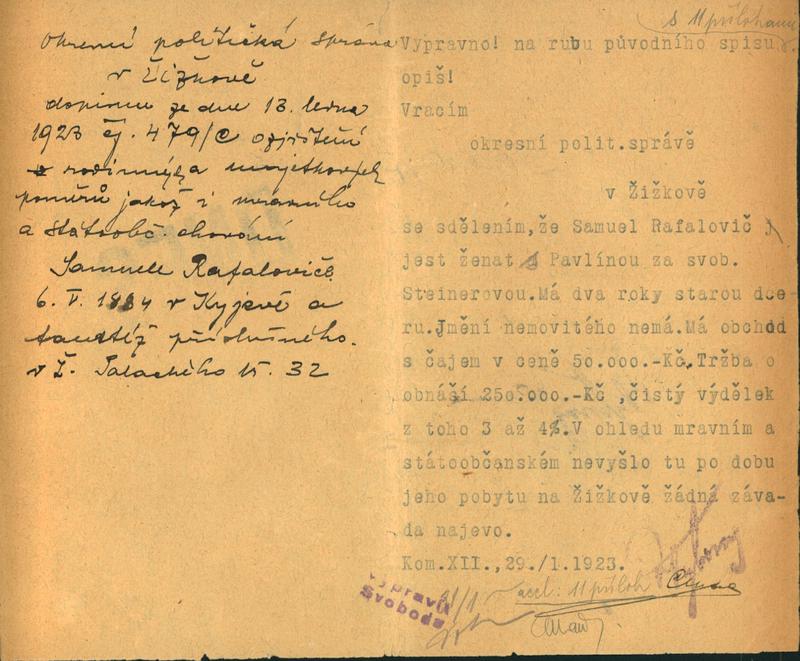 s 11 přílohami
Okresní politická správa
v Žižkově
dopisem ze dne 13. ledna
1923 čj. 479/C o zjištění
rodinných a majetkových
poměrů jakož i mravního
a státoobč. chování
Samuele Rafaloviče
6. V. 1884 v Kyjevě a
tamtéž příslušného.
v Ž. Palackého tř. 32
Vypravno! na rubu původního spisu
opiš!
Vracím
okresní polit.správě
v Žižkově
se sdělením,že Samuel Rafalovič
jest ženat s Pavlínou za svob.
Steinerovou.Má dva roky starou dce-
ru.Jmění nemovitého nemá.Má obchod
s čajem v ceně 50.000.-Kč.Tržba o
obnáší 250.000.-Kč ,čistý výdělek
z toho 3 až 4%.V ohledu mravním a
státoobčanském nevyšlo tu po dobu
jeho pobytu na Žižkově žádná záva-
da najevo.
Kom.XII.,29./1.1923.
accl: 11 příloh
Vypravil
Svoboda
31/1